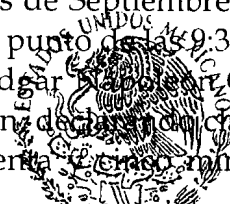 s de Septiembre
punto de las 9:3
dgar Napoleón
n declarando ch
enta y cinco min
ESTADOS UNIDOS MEXICANOS